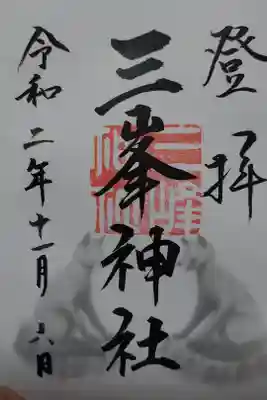 登拝
三峯神社
令和二年十一月六日